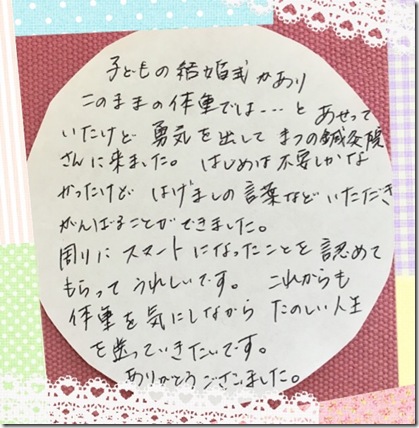 子どもの結婚式があり
このままの体重では…と あせって
いたけど 勇気を出して まつの鍼灸院
さんに来ました。 はじめは不安しかな
かったけど はげましの言葉などいただき
がんばることができました。
周りに スマートになったことを 認めて
もらって うれしいです。 これからも
体重を気にしながら たのしい人生
を歩っていきたいです。
ありがとうございました。